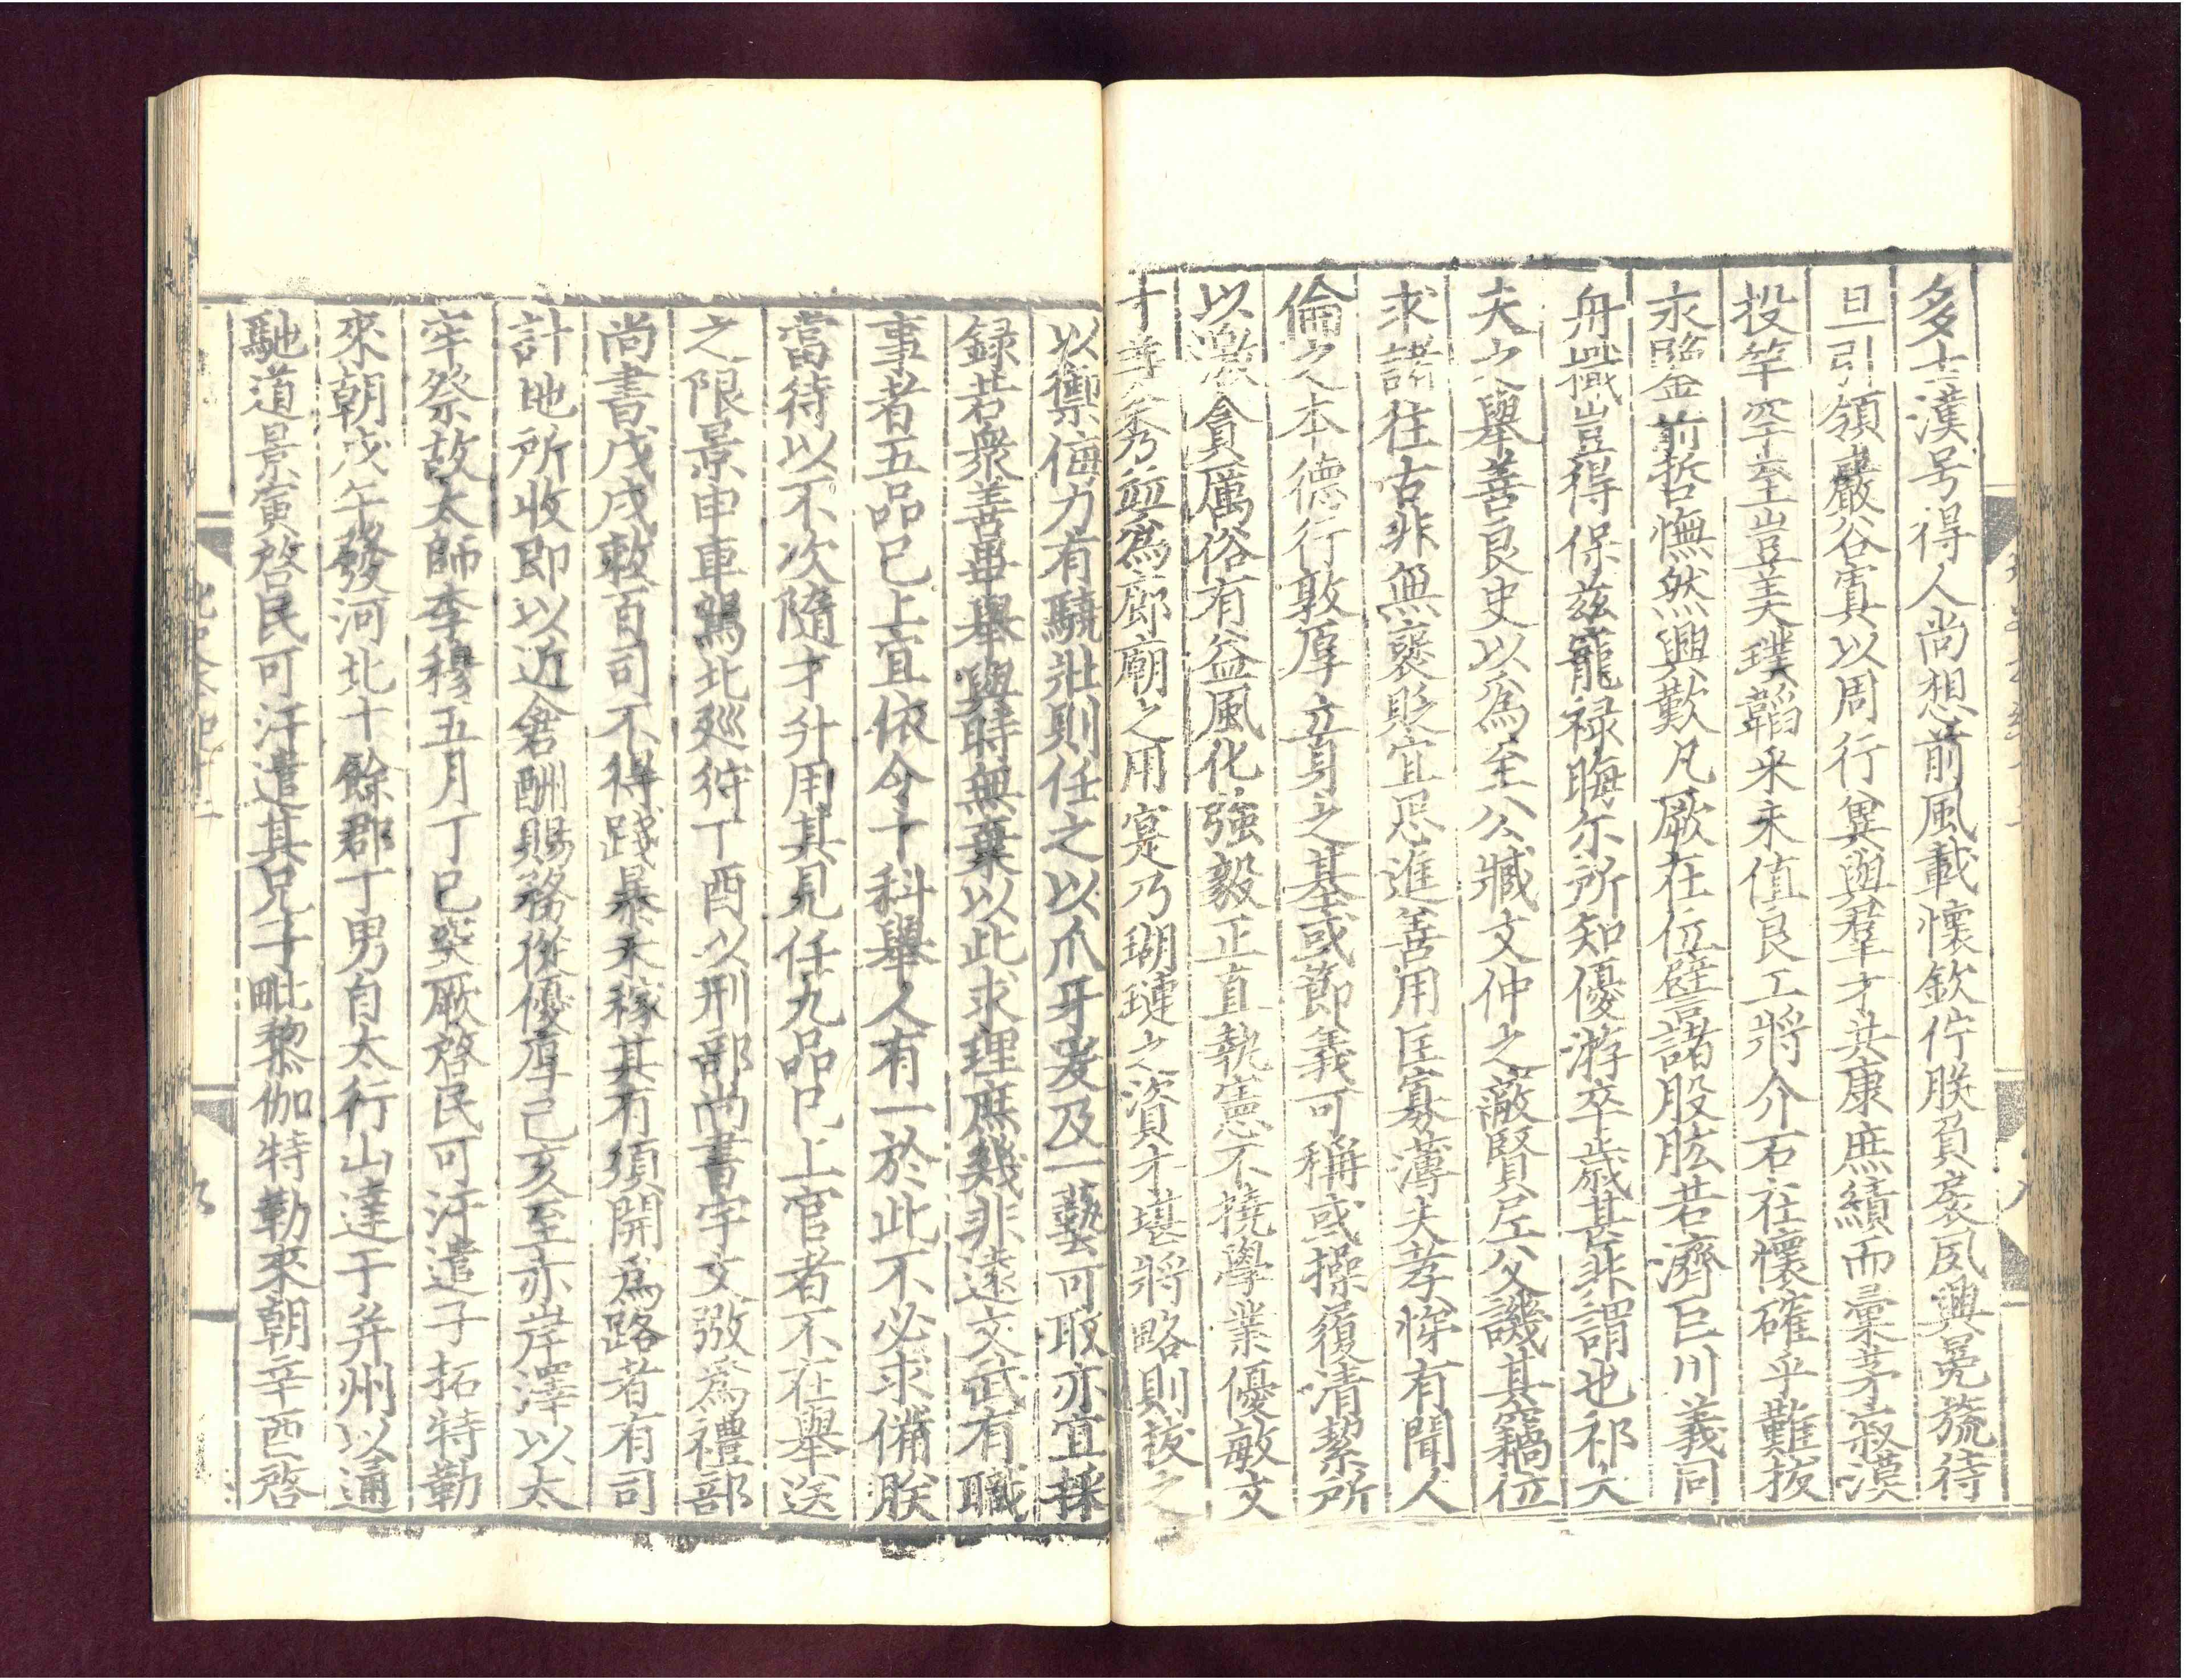 多士漢号得人尚想前風載懷欽佇朕負扆夙興冕旒待
旦引領巖谷寘以周行冀與羣才共康庶績而彙茅寂漠
投竿罕至豈美璞韜采未值良工將介石在懷確乎難拔
永鑒前哲憮然興歎凡厥在位譬諸股肱若濟巨川義同
舟檝豈得保兹寵禄晦尓所知優游卒歲甚非謂也祁大
夫之舉善良史以為至公臧文仲之蔽賢尼父譏其竊位
求諸往古非無襃貶宜思進善用匡寡薄夫孝悌有聞人
倫之本德行敦厚立身之基或節義可稱或操履清絜所
以激貪厲俗有益風化強毅正直執憲不撓學業優敏文
才美秀並為廊廟之用寔乃瑚璉之資才堪將略則拔之
以禦侮力有驍壯則任之以爪牙爰及一藝可取亦宜採
録若衆善畢舉與時無棄以此求理庶幾非遠文武有職
事者五品已上宜依令十科舉人有一於此不必求備朕
當待以不次隨才升用其見任九品已上官者不在舉送
之限景申車駕北巡狩丁酉以刑部尚書宇文弼為禮部
尚書戊戌敕百司不得踐暴禾稼其有須開為路者有司
計地所收即以近倉酬賜務從優厚己亥至赤岸澤以太
牢祭故太師李穆五月丁巳突厥啓民可汗遣子拓特勤
來朝戊午發河北十餘郡丁男自太行山達于并州以通
馳道景寅啓民可汗遣其兄子毗黎伽特勒來朝辛酉啓